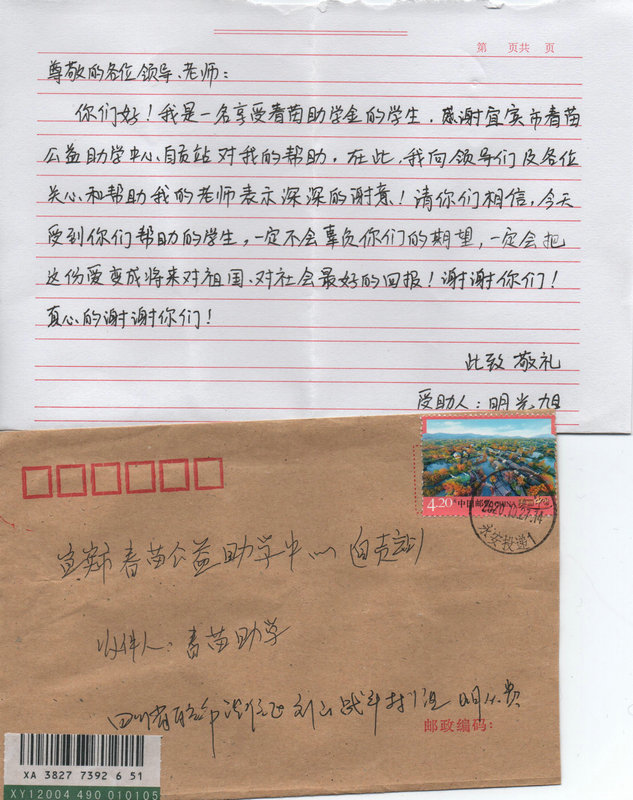 第 页共 页
尊敬的各位领导、老师：
你们好！我是一名享受春苗助学金的学生，感谢宜宾市春苗
公益助学中心自贡站对我的帮助，在此，我向领导们及各位
关心和帮助我的老师表示深深的谢意！请你们相信，今天
受到你们帮助的学生，一定不会辜负你们的期望，一定会把
这份爱变成将来对祖国、对社会最好的回报！谢谢你们！
真心的谢谢你们！
此致 敬礼
受助人：明光旭
4.20元 中国邮政 CHINA
兴安投递1
宜宾市春苗公益助学中心自贡站
收件人：春苗助学
四川省
邮政编码：
XA 3827 7392 6 51
XY12004 490 010105